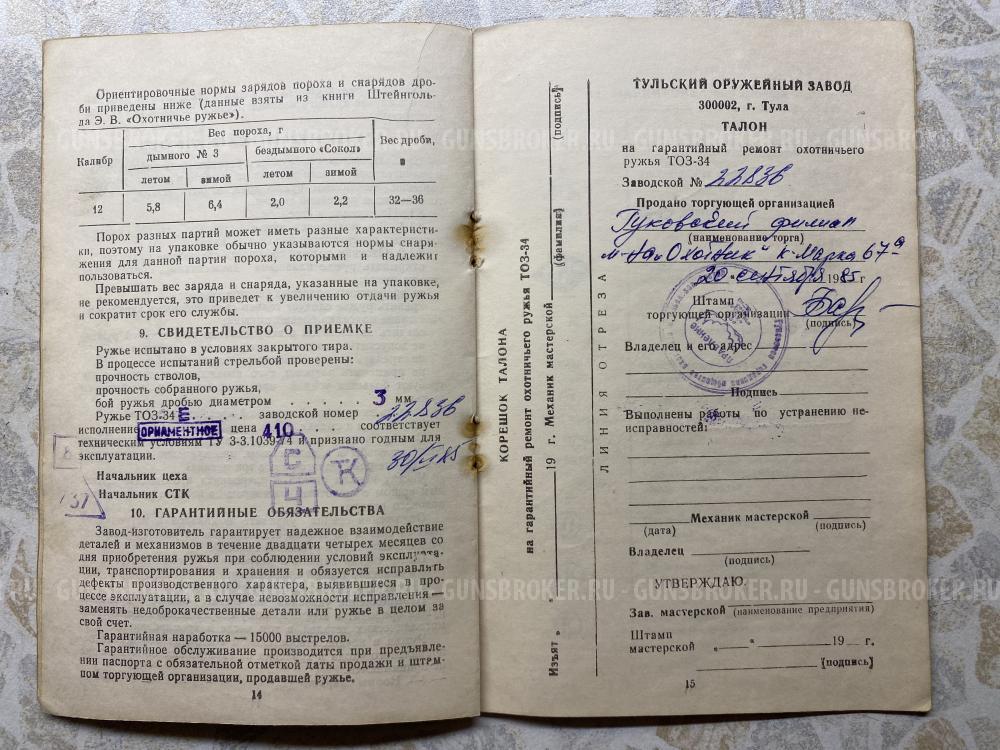 Ориентировочные нормы зарядов пороха и снарядов дро-
би приведены ниже (данные взяты из книги Штейнголь-
да Э. В. «Охотничье ружье»).
Калибр
Вес пороха, г
Вес дроби,
г
дымного № 3
бездымного «Сокол»
летом
зимой
летом
зимой
12
5,8
6,4
2,0
2,2
32—36
Порох разных партий может иметь разные характеристи-
ки, поэтому на упаковке обычно указываются нормы снаря-
жения для данной партии пороха, которыми и надлежит
пользоваться.
Превышать вес заряда и снаряда, указанные на упаковке,
не рекомендуется, это приведет к увеличению отдачи ружья
и сократит срок его службы.
9. СВИДЕТЕЛЬСТВО О ПРИЕМКЕ
Ружье испытано в условиях закрытого тира.
В процессе испытаний стрельбой проверены:
прочность стволов,
прочность собранного ружья,
бой ружья дробью диаметром . . . . . . . 3 мм
Ружье ТОЗ-34 Е . . . . . заводской номер 22836
исполнение ОРНАМЕНТНОЕ цена 410 . . . . соответствует
техническим условиям ТУ 3-3.1039-74 и признано годным для
эксплуатации.
С
Ч
К
Начальник цеха
Начальник СТК
37
10. ГАРАНТИЙНЫЕ ОБЯЗАТЕЛЬСТВА
Завод-изготовитель гарантирует надежное взаимодействие
деталей и механизмов в течение двадцати четырех месяцев со
дня приобретения ружья при соблюдении условий эксплуата-
ции, транспортирования и хранения и обязуется исправлять
дефекты производственного характера, выявившиеся в про-
цессе эксплуатации, а в случае невозможности исправления —
заменять недоброкачественные детали или ружье в целом за
свой счет.
Гарантийная наработка — 15000 выстрелов.
Гарантийное обслуживание производится при предъявле-
нии паспорта с обязательной отметкой даты продажи и штам-
пом торгующей организации, продавшей ружье.
14
КОРЕШОК ТАЛОНА
на гарантийный ремонт охотничьего ружья ТОЗ-34
Изъят „ “ 19 г. Механик мастерской
(фамилия)
(подпись)
ЛИНИЯ ОТРЕЗА
ТУЛЬСКИЙ ОРУЖЕЙНЫЙ ЗАВОД
300002, г. Тула
ТАЛОН
на гарантийный ремонт охотничьего
ружья ТОЗ-34
Заводской № 22836
Продано торгующей организацией
Гуковский филиал
(наименование торга)
м-на „Охотник" К-Маркса 67а
20 сентября 1985 г
Штамп
торгующей организации
(подпись)
Владелец и его адрес
Подпись
Выполнены работы по устранению не-
исправностей:
Механик мастерской
(дата) (подпись)
Владелец
(подпись)
УТВЕРЖДАЮ:
Зав. мастерской (наименование предприятия)
Штамп
мастерской „ “ 19 г.
(подпись)
15
GUNSBROKER.RU - GUNSBROKER.RU - GUNSBROKER.RU
GUNSBROKER.RU - GUNSBROKER.RU - GUNSBROKER.RU